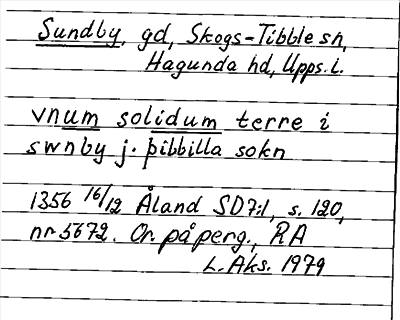 Sundby, gd, Skogs-Tibble sn,
Hagunda hd, Upps. l.
vnum solidum terre i
swnby j. þibbilla sokn
1356 16/12 Åland SD7:1, s. 120,
nr 5672. Or. på perg., RA
L. Aks. 1979